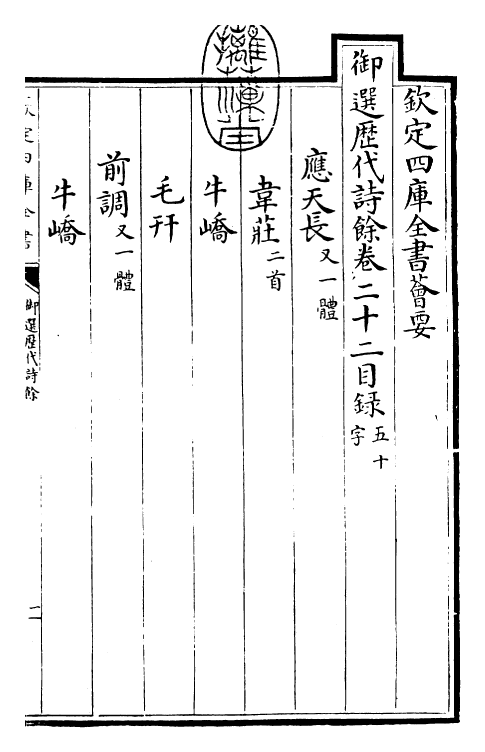 欽定四庫全書薈要
御選歷代詩餘卷二十二目録五十字
應天長又一體
韋莊二首
牛嶠
毛幵
前調又一體
牛嶠
欽定四庫全書
御選歷代詩餘
一